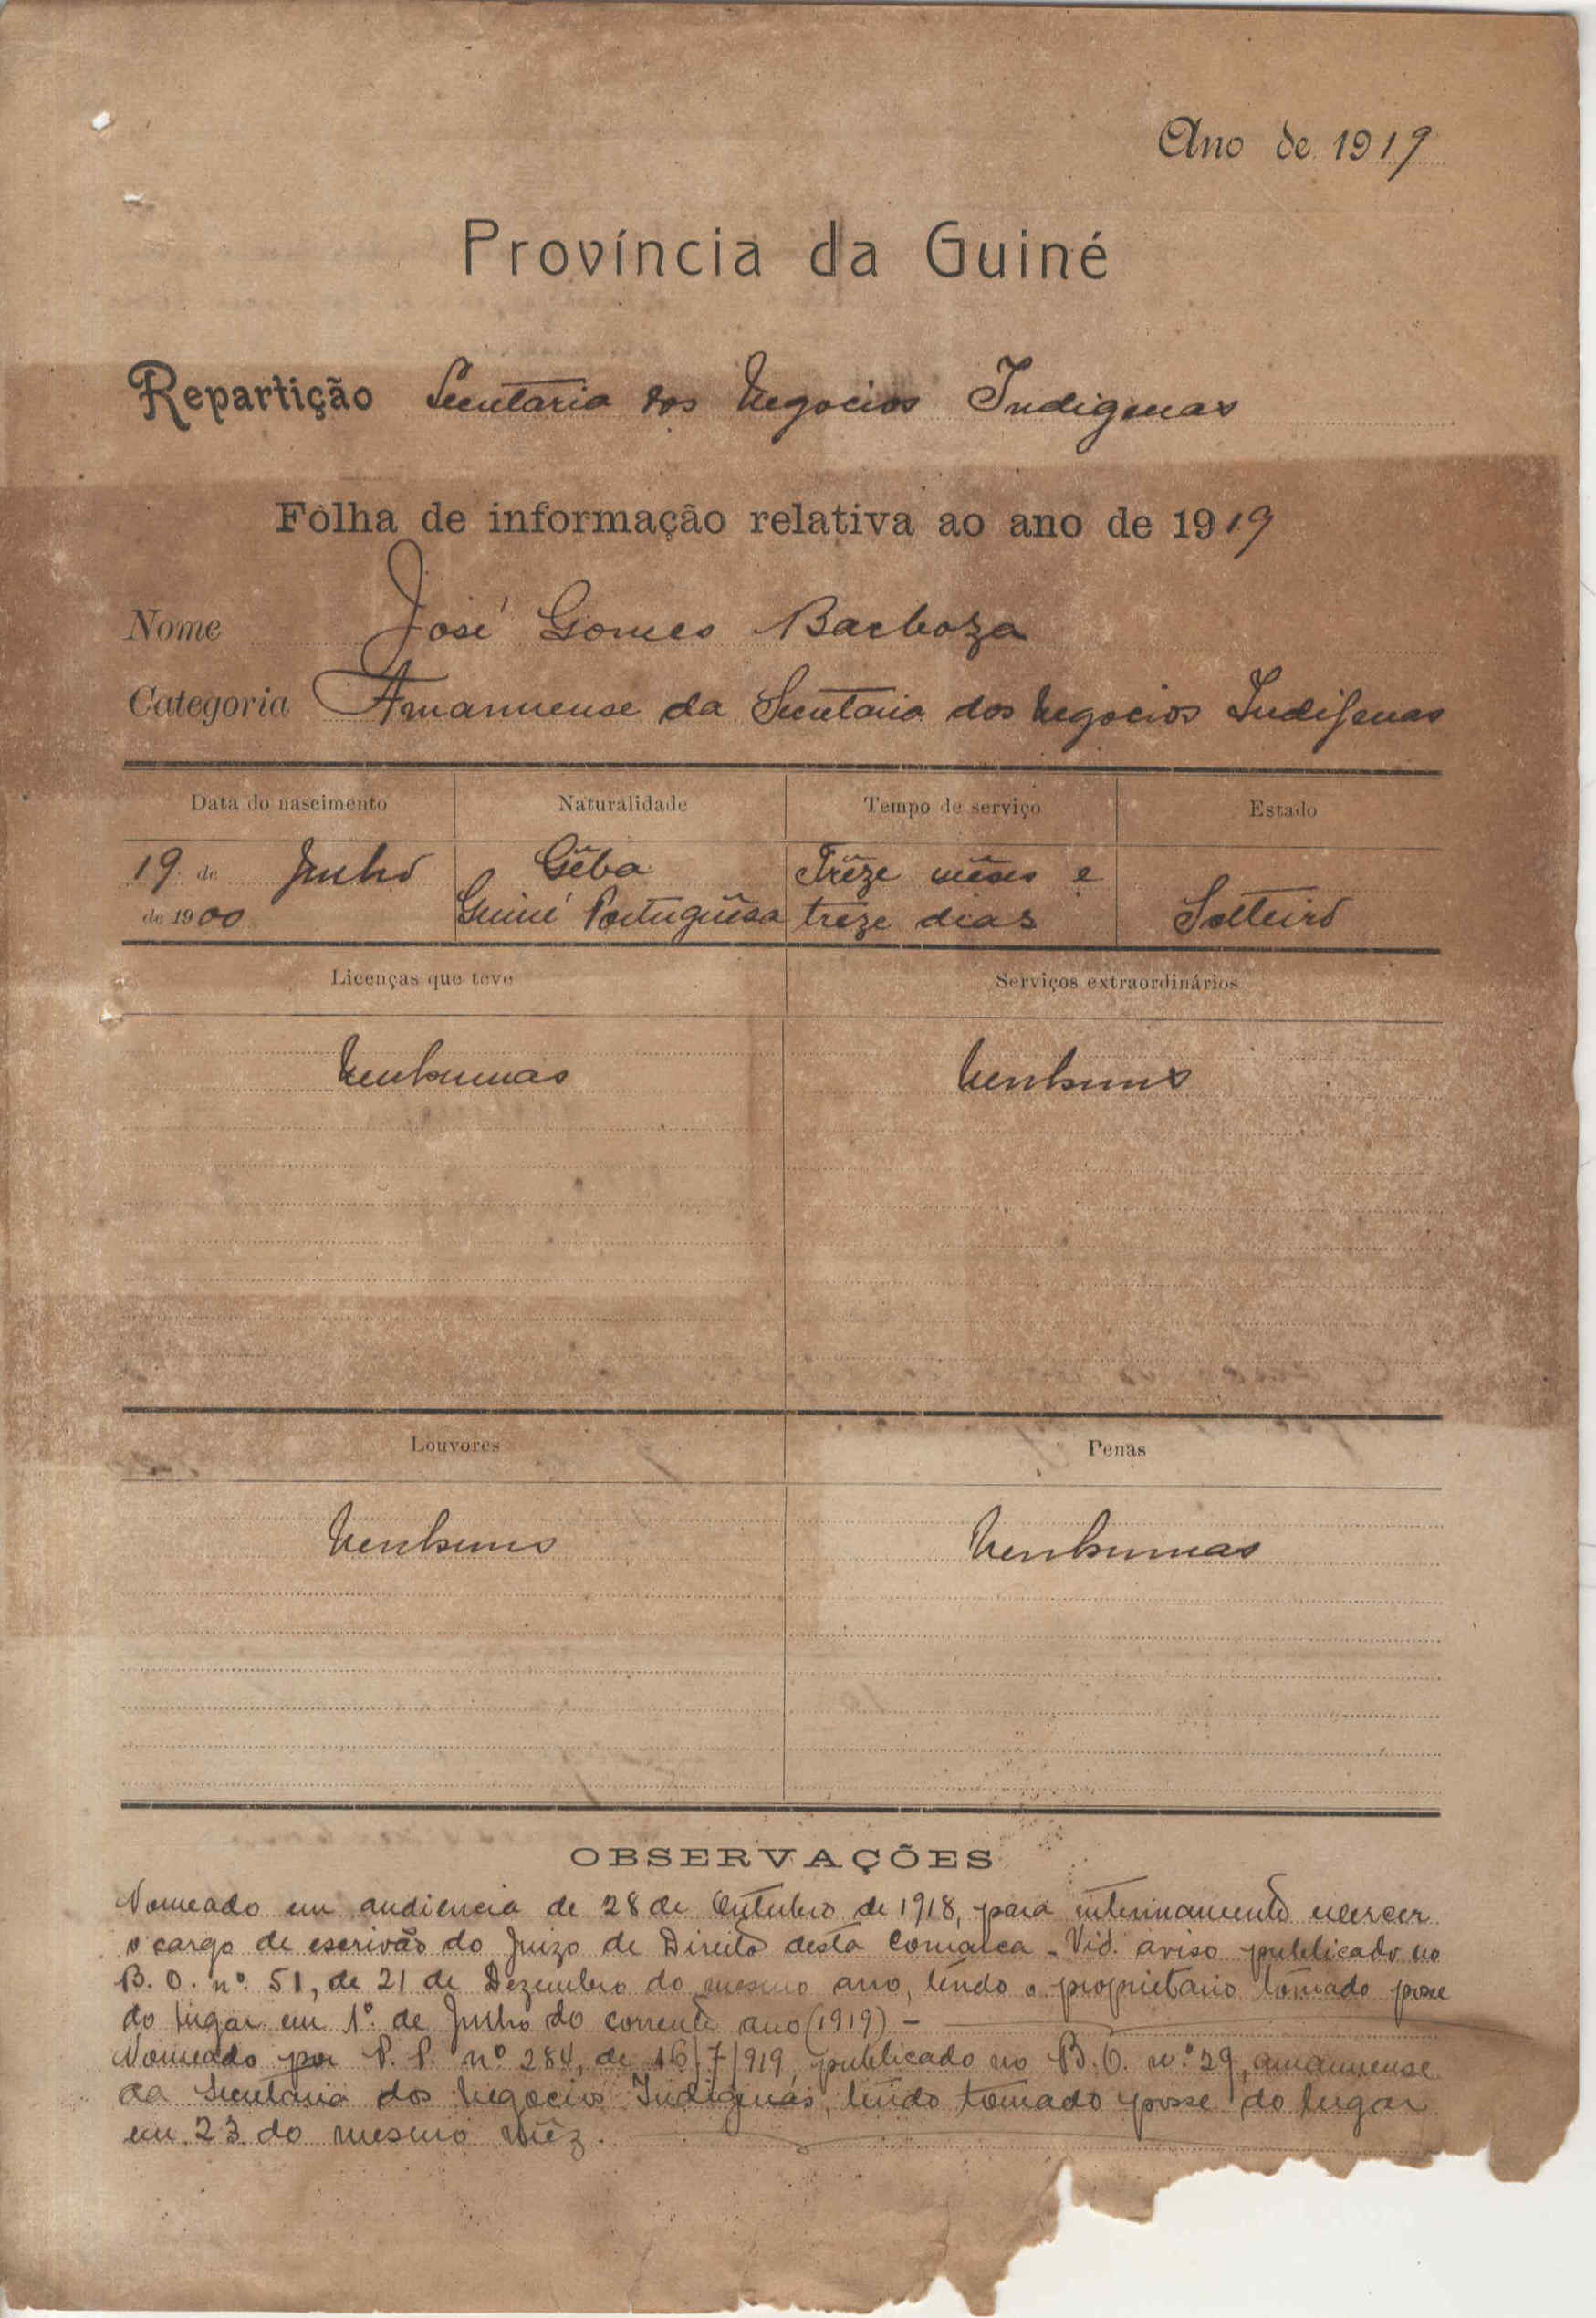 Ano de 1919
Província da Guiné
Repartição Secretaria dos Negocios Indigenas
Fôlha de informação relativa ao ano de 1919
Nome José Gomes Barboza
Categoria Amanuense da Secretaria dos Negocios Indigenas
Data do nascimento Naturalidade Tempo de serviço Estado
19 de Junho Gêba Trêze mêses e
de 1900 Guiné Portuguêsa trêze dias Solteiro
Licenças que teve Serviços extraordinários
Nenhumas Nenhuns
Louvores Penas
Nenhuns Nenhumas
OBSERVAÇÕES
Nomeado em audiencia de 28 de Outubro de 1918, para interinamente exercer
o cargo de escrivão do Juizo de Direito desta Comarca - Vid. aviso publicado no
B. O. nº. 51, de 21 de Dezembro do mesmo ano, tendo o proprietario tomado posse
do lugar em 1º. de Junho do corrente ano (1919) -
Nomeado por P. P. nº 284, de 16/7/919, publicado no B. O. n.º 29, amanuense
da Secretaria dos Negocios Indigenas, tendo tomado posse do lugar
em 23 do mesmo mêz.